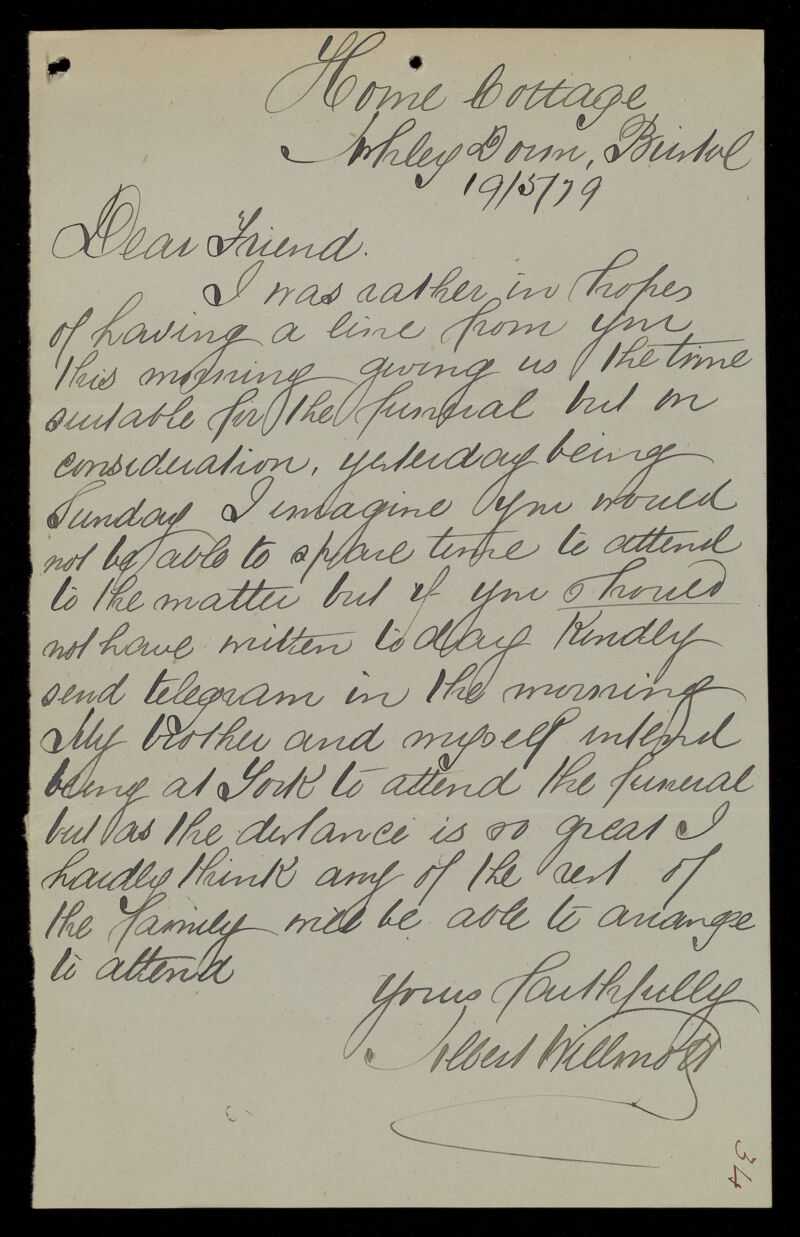 Home Cottage
Ashley Down, Bristol
19/5/79
Dear Friend.
I was rather in hopes
of having a line from you
this morning giving us the time
suitable for the funeral but on
consideration, yesterday being
Sunday I imagine you would
not be able to spare time to attend
to the matter but if you should
not have written to day Kindly
send telegram in the morning
My brother and myself intend
being at York to attend the funeral
but as the distance is so great I
hardly think any of the rest of
the family will be able to arrange
to attend
Yours faithfully
Albert Willmott
34